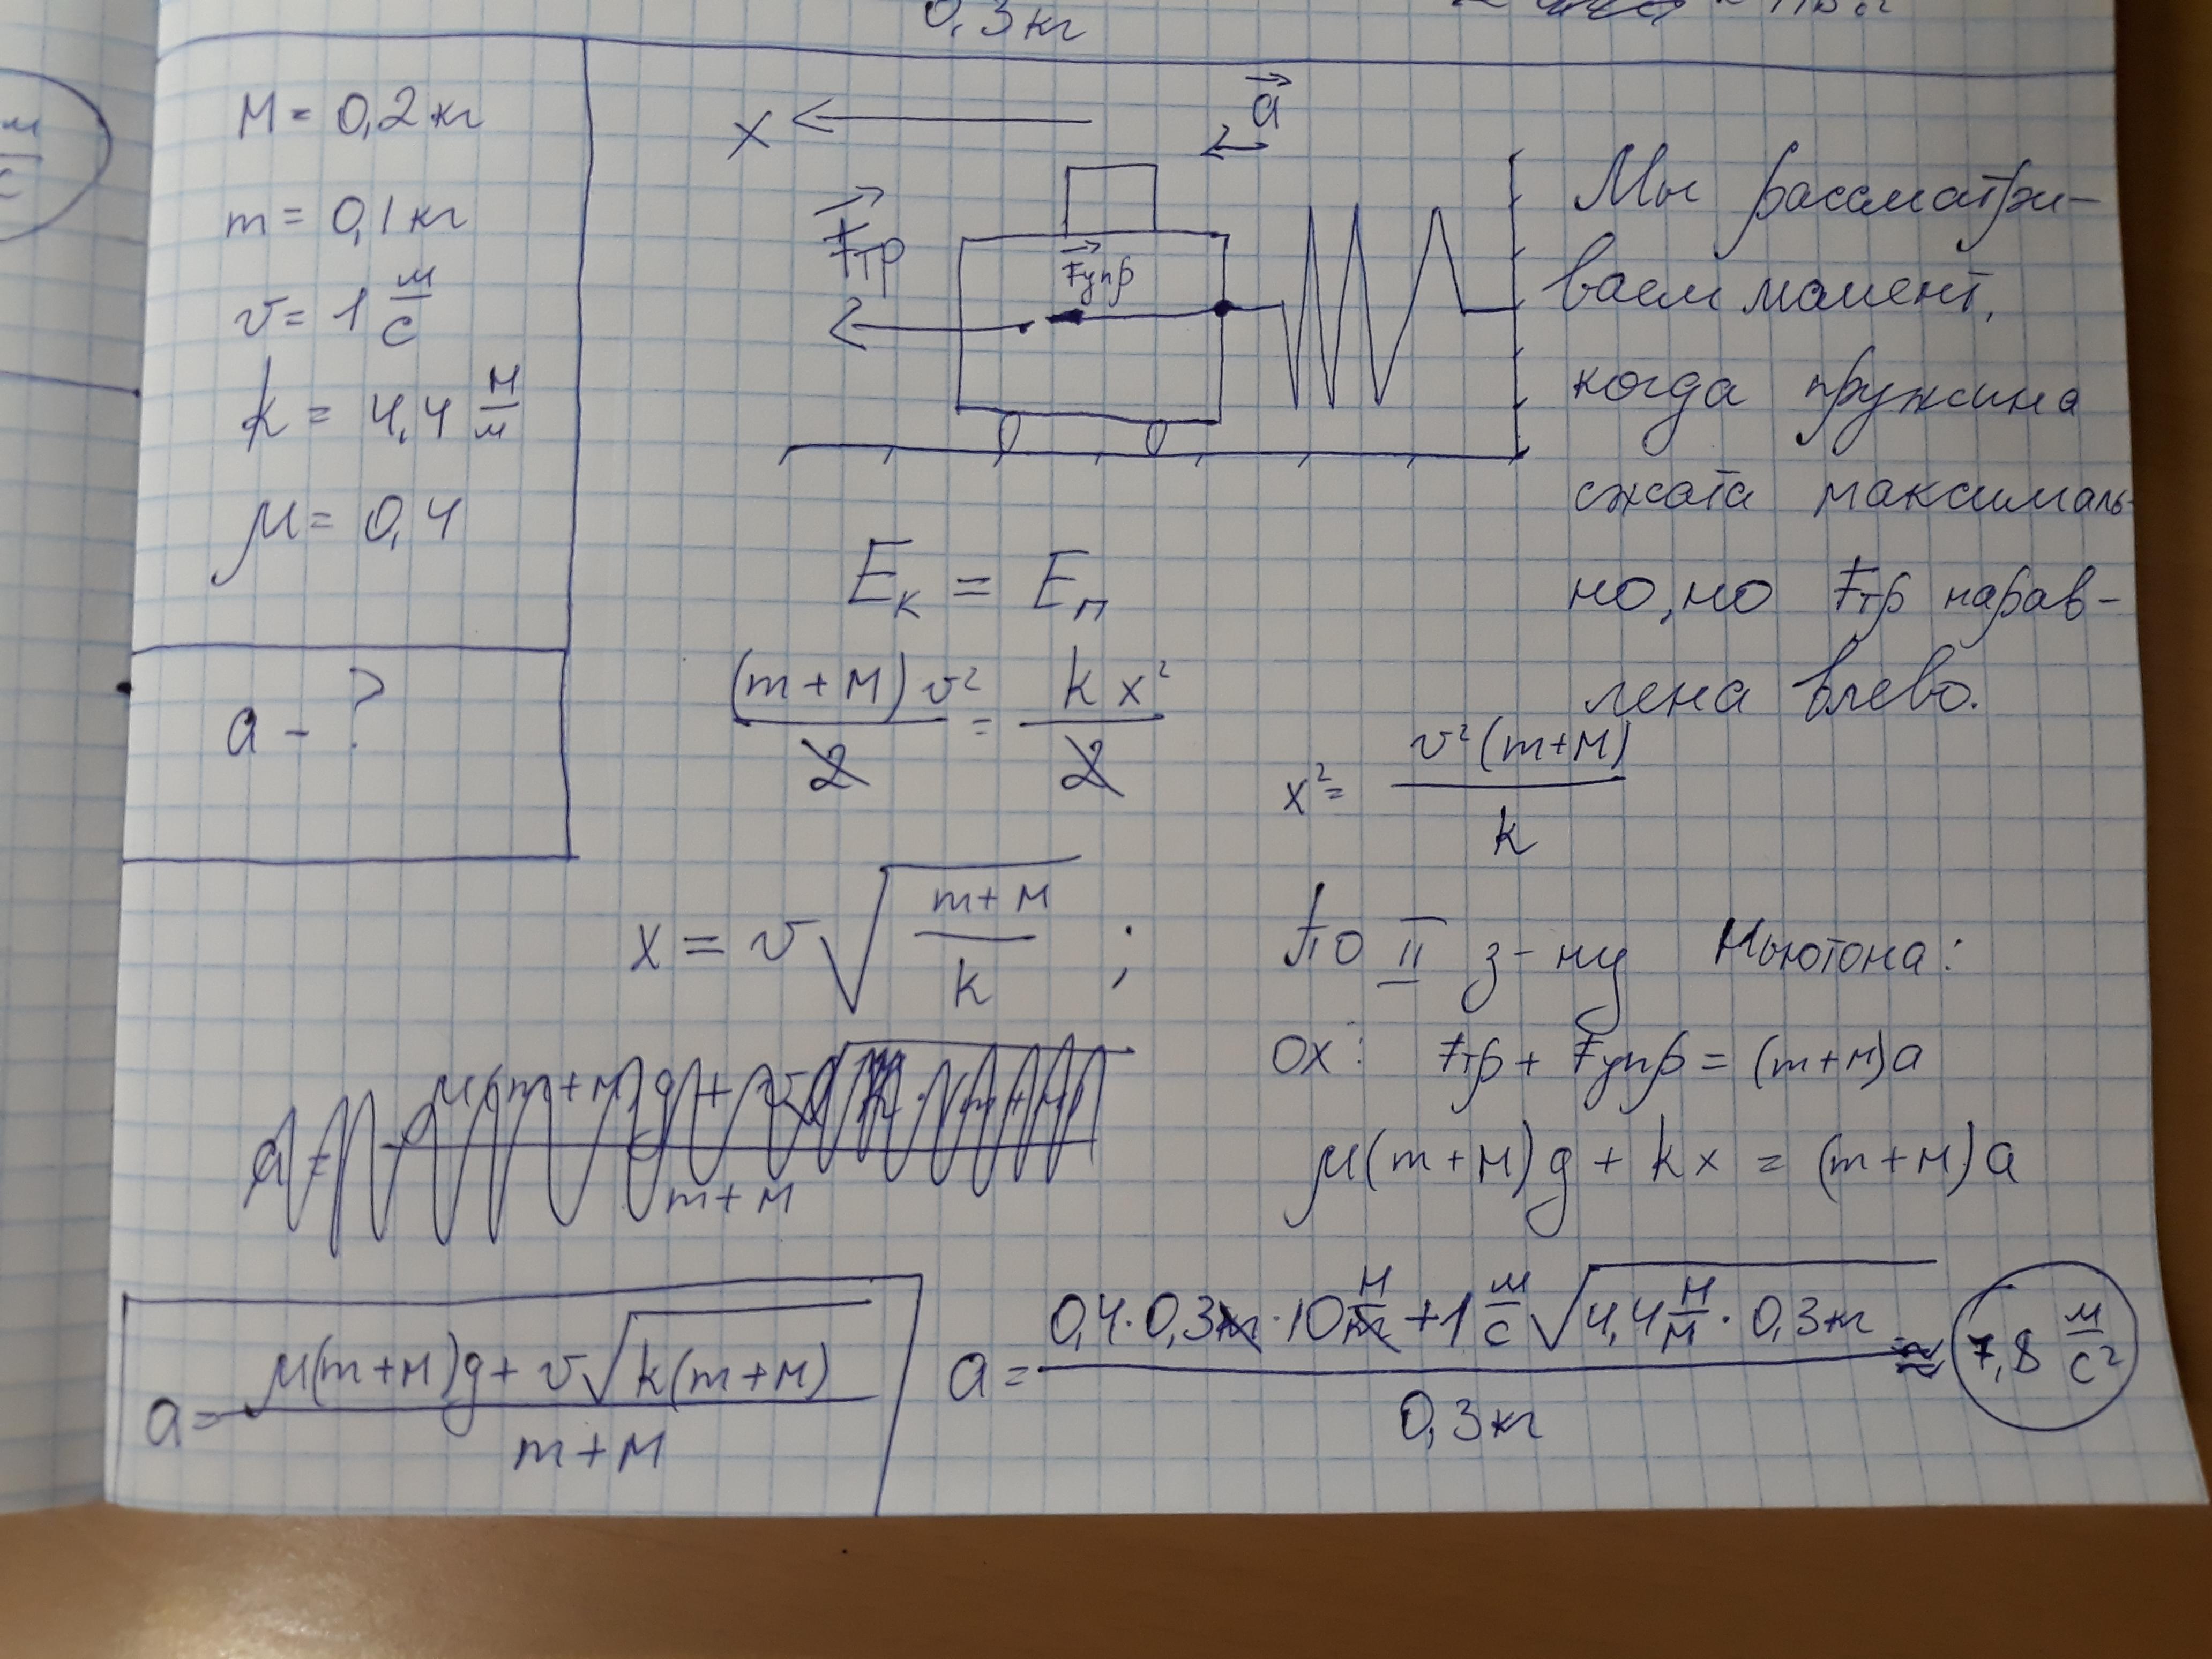 0,3кг
M = 0,2 кг
m = 0,1 кг
v = 1 м/с
k = 4,4 Н/м
μ = 0,4
a - ?
X
a
Fтр
Fупр
Мы рассматри-
ваем момент,
когда пружина
сжата максималь-
но, но Fтр нарав-
лена влево.
Eк = Eп
(m+M)v²/2 = kx²/2
x² = v²(m+M)/k
x = v√((m+M)/k) ;
По II з-ну Ньютона:
OX: Fтр + Fупр = (m+M)a
μ(m+M)g + kx = (m+M)a
a = (μ(m+M)g + v√(k(m+M)))/(m+M)
a = (0,4·0,3кг·10 Н/кг + 1 м/с √(4,4 Н/м · 0,3кг))/0,3кг ≈ 7,8 м/с²
м/с